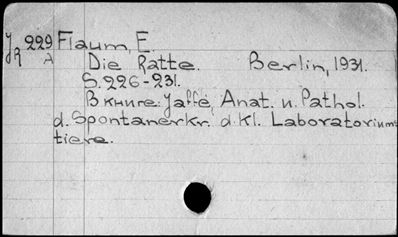 Jr 229 Flaum, E.
A Die Ratte. Berlin, 1931.
S. 226-231.
В книге: Jaffé, Anat. u. Pathol.
d. Spontanerkr. d. kl. Laboratoriums-
tiere.